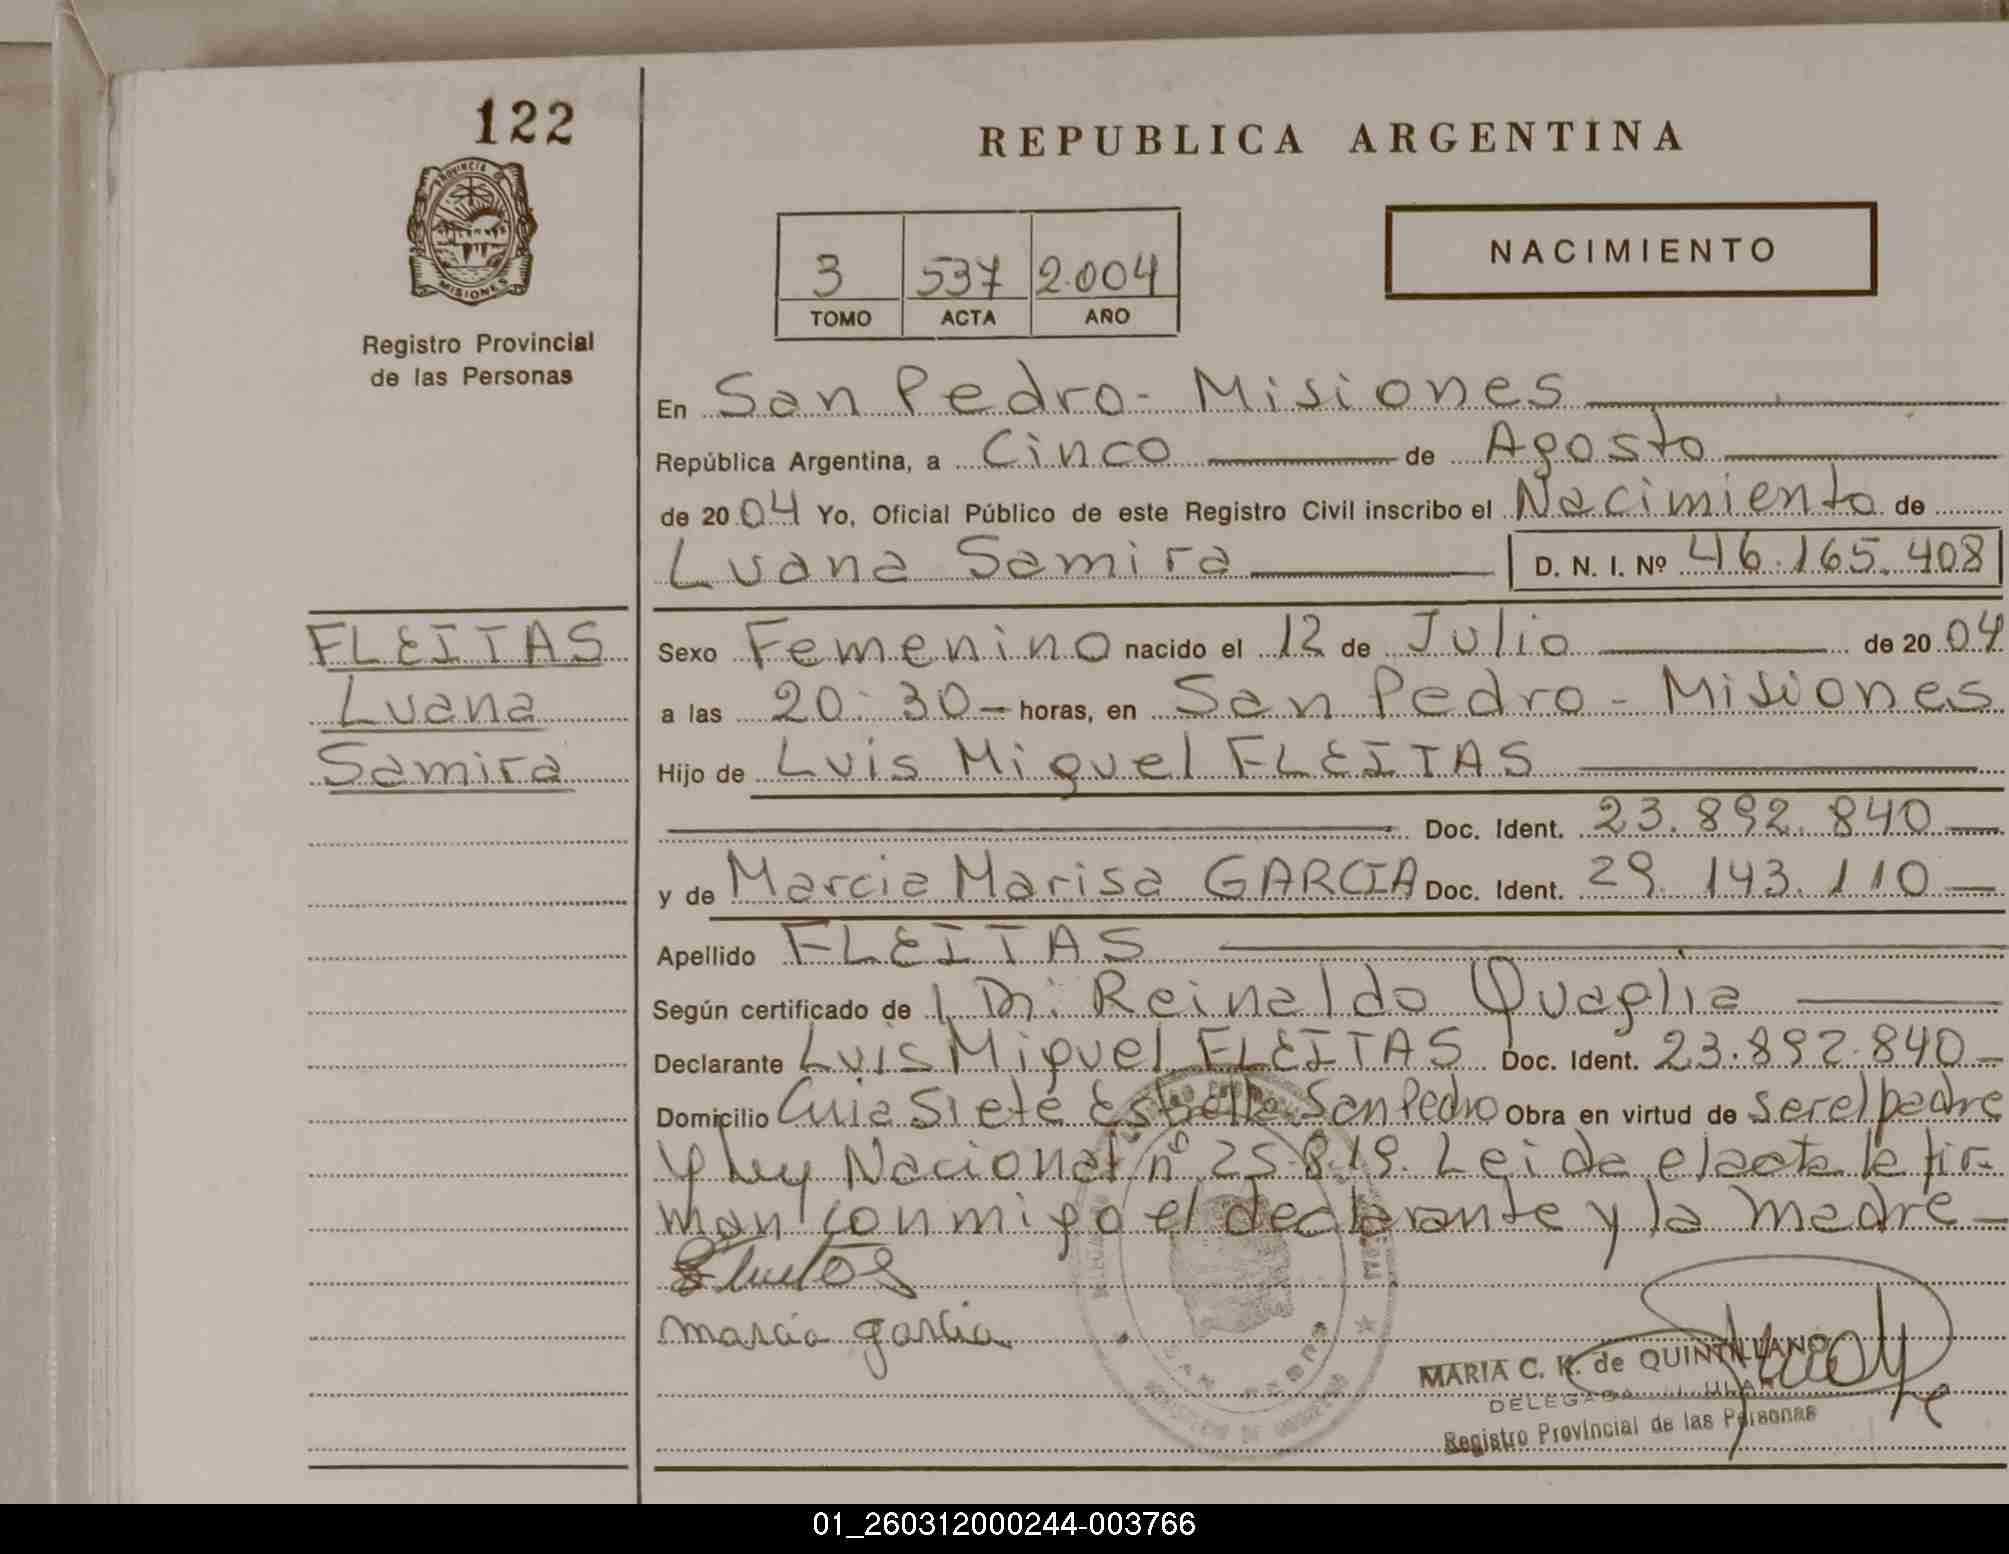 122
REPUBLICA ARGENTINA
PROVINCIA D
MISIONES
Registro Provincial
de las Personas
NACIMIENTO
3 537 2.004
TOMO ACTA AÑO
En San Pedro - Misiones
República Argentina, a Cinco de Agosto
de 2004 Yo, Oficial Público de este Registro Civil inscribo el Nacimiento de
Luana Samira D. N. I. Nº 46.165.408
FLEITAS
Luana
Samira
Sexo Femenino nacido el 12 de Julio de 2004
a las 20:30 horas, en San Pedro - Misiones
Hijo de Luis Miguel FLEITAS
Doc. Ident. 23.892.840
y de Marcia Marisa GARCIA Doc. Ident. 29.143.110
Apellido FLEITAS
Según certificado de Dr. Reinaldo Quaglia
Declarante Luis Miguel FLEITAS Doc. Ident. 23.892.840
Domicilio Siete Estrella San Pedro Obra en virtud de ser el padre
y Ley Nacional nº 25.819. Leida el acta la fir-
man conmigo el declarante y la madre
marcia garcia
SAN PEDRO
MARIA C. K. de QUINTILLANO
Registro Provincial de las Personas
01_260312000244-003766